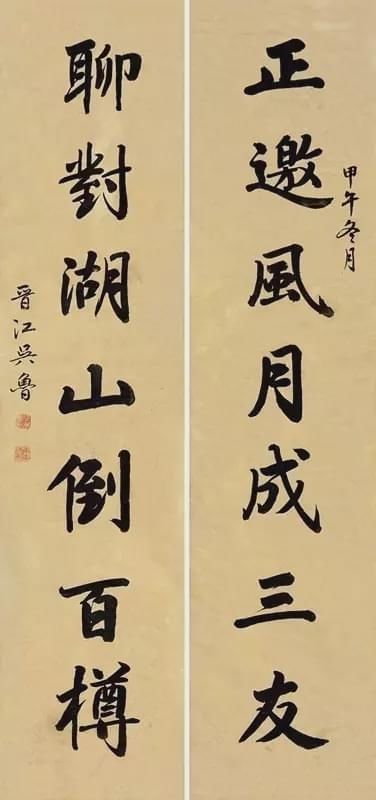 正邀風月成三友
甲午冬月
聊對湖山倒百樽
晉江吳魯